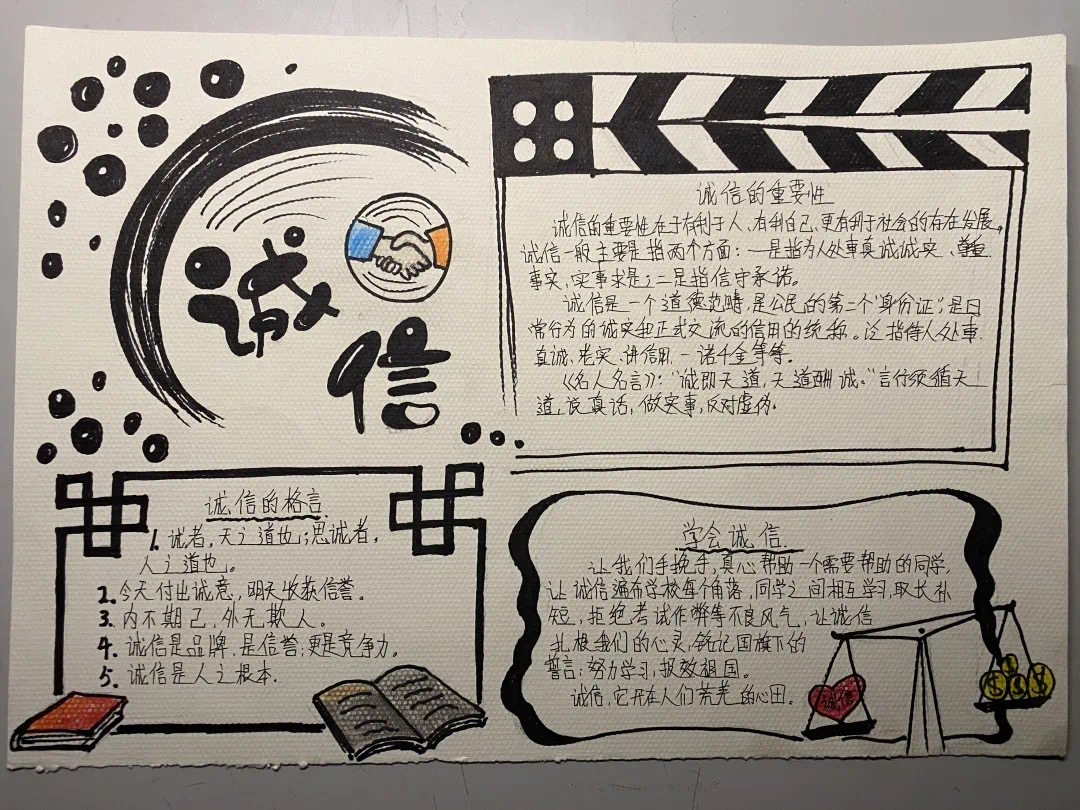 诚信
诚信的重要性
诚信的重要性在于有利于人、有利自己、更有利于社会的存在发展。
诚信一般主要是指两个方面：一是指为人处事真诚诚实、尊重
事实，实事求是；二是指信守承诺。
诚信是一个道德范畴，是公民的第二个"身份证"；是日
常行为的诚实和正式交流的信用的统称。泛指待人处事
真诚、老实、讲信用、一诺千金等等。
《名人名言》："诚即天道，天道酬诚。"言行须循天
道，说真话，做实事，反对虚伪。
诚信的格言
1. 诚者，天之道也；思诚者，
人之道也。
2. 今天付出诚意，明天收获信誉。
3. 内不期己，外无欺人。
4. 诚信是品牌，是信誉；更是竞争力。
5. 诚信是人之根本.
学会诚信
让我们手挽手，真心帮助一个需要帮助的同学，
让诚信遍布学校每个角落，同学之间相互学习，取长补
短，拒绝考试作弊等不良风气，让诚信
扎根我们的心灵，铭记国旗下的
誓言；努力学习；报效祖国。
诚信，它开在人们荒芜的心田。
诚信